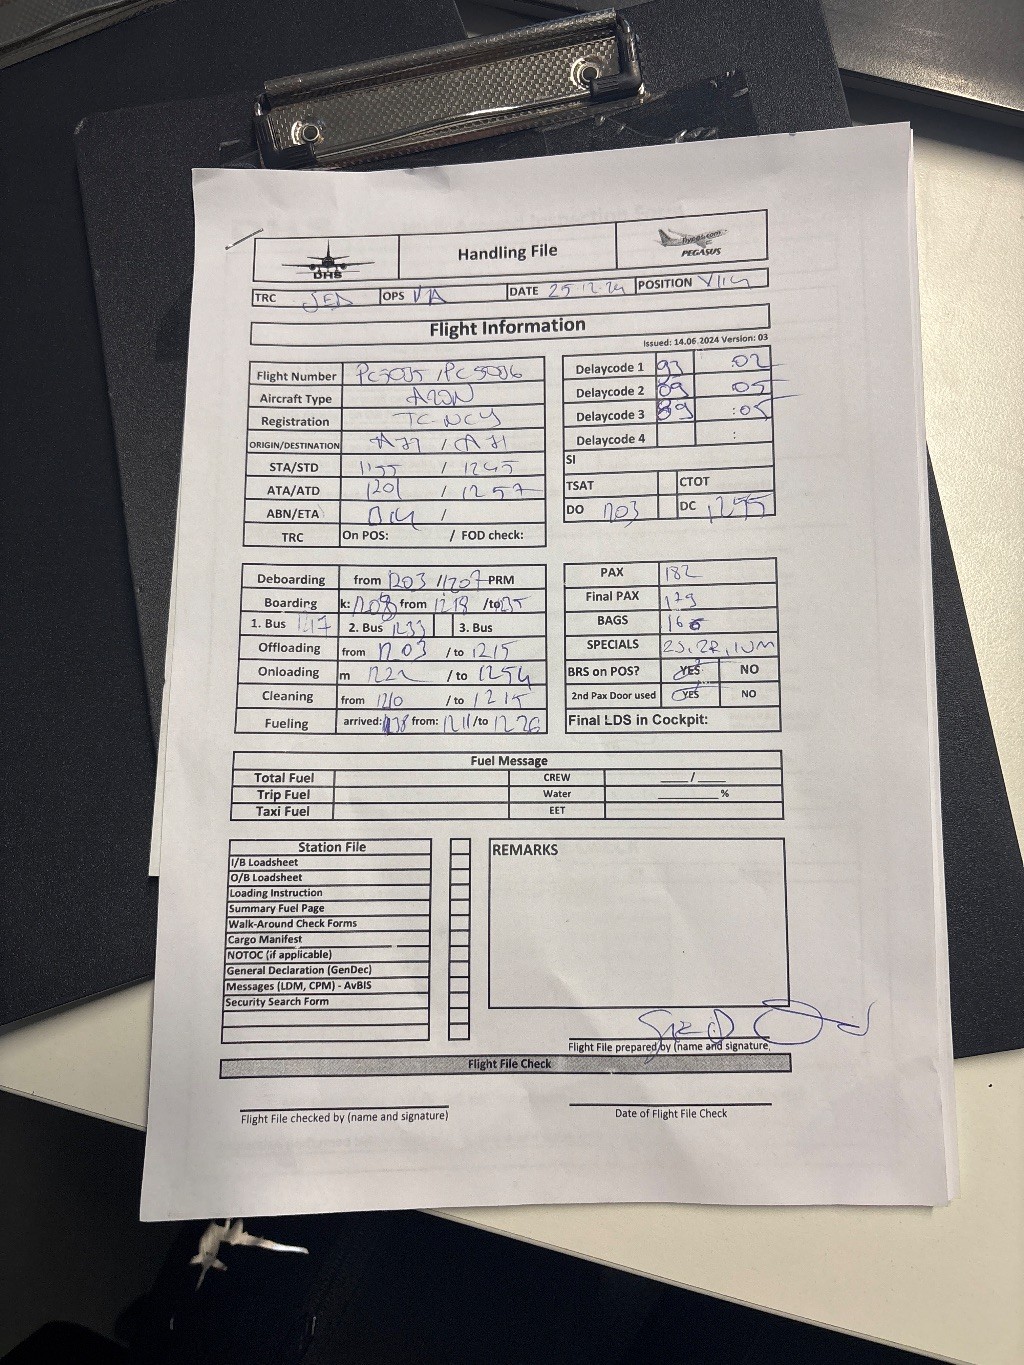 DHS Handling File flypgs.com PEGASUS
TRC OPS DATE 25.12.24 POSITION V114
Flight Information
Issued: 14.06.2024 Version: 03
Flight Number PC5015 / PC5016
Aircraft Type A20N
Registration TC-NCY
ORIGIN/DESTINATION /
STA/STD 1155 / 1245
ATA/ATD 1201 / 1257
ABN/ETA /
TRC On POS: / FOD check:
Delaycode 1 93 :02
Delaycode 2 09 :05
Delaycode 3 89 :05
Delaycode 4 :
SI
TSAT CTOT
DO 1203 DC 1255
Deboarding from 1203 / 1207 PRM
Boarding k: 1208 from 1218 /to
1. Bus 1217 2. Bus 1233 3. Bus
Offloading from 1203 / to 1215
Onloading m 122 / to 1254
Cleaning from 1210 / to 1215
Fueling arrived: from: 1211 /to 1226
PAX 182
Final PAX 179
BAGS 166
SPECIALS
BRS on POS? YES NO
2nd Pax Door used YES NO
Final LDS in Cockpit:
Fuel Message
Total Fuel CREW ____/____
Trip Fuel Water ________%
Taxi Fuel EET
Station File
I/B Loadsheet
O/B Loadsheet
Loading Instruction
Summary Fuel Page
Walk-Around Check Forms
Cargo Manifest
NOTOC (if applicable)
General Declaration (GenDec)
Messages (LDM, CPM) - AvBIS
Security Search Form
REMARKS
Flight File prepared by (name and signature
Flight File Check
Flight File checked by (name and signature)
Date of Flight File Check